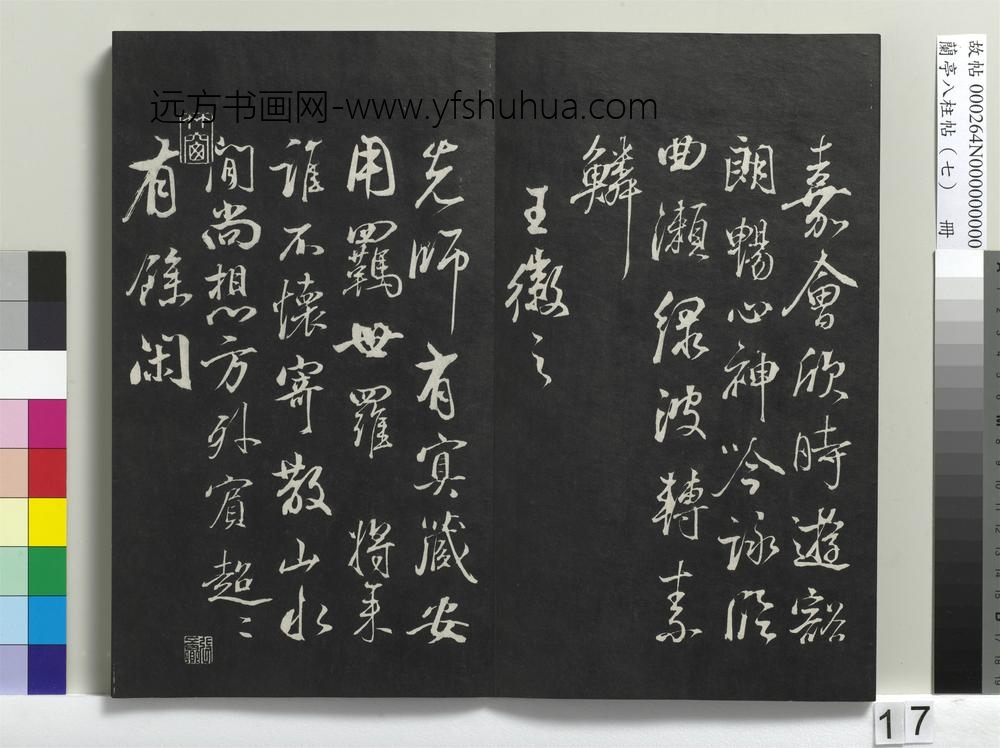 远方书画网-www.yfshuhua.com
嘉會欣時遊豁
朗暢心神吟詠臨
曲瀨綠波轉素
鱗
王徽之
先師有冥藏安
用羈世羅將來
誰不懷寄散山水
間尚想方外賓超〻
有餘閑
竹窗
故帖 000264N000000000
蘭亭八柱帖（七） 冊
17